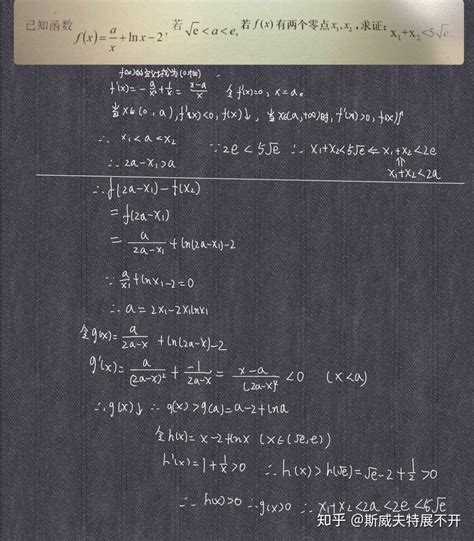 已知函数 f(x)=a/x+ln x-2, 若 √e<a<e, 若 f(x) 有两个零点 x₁,x₂, 求证: x₁+x₂<5√e
f(x)的定义域为(0,+∞)
f'(x)=-a/x²+1/x=(x-a)/x² 令f'(x)=0, x=a。
当x∈(0,a), f'(x)<0, f(x)↓, 当x∈(a,+∞)时, f'(x)>0, f(x)↑
∴ x₁<a<x₂
∵2e<5√e ∴ x₁+x₂<5√e ⇐ x₁+x₂<2e
⇑
x₁+x₂<2a
∴ 2a-x₁>a
∴f(2a-x₁)-f(x₂)
=f(2a-x₁)
=a/(2a-x₁)+ln(2a-x₁)-2
∵ a/x₁+lnx₁-2=0
∴ a=2x₁-x₁lnx₁
令g(x)=a/(2a-x)+ln(2a-x)-2
g'(x)=a/(2a-x)²+(-1)/(2a-x)=(x-a)/(2a-x)²<0 (x<a)
∴g(x)↓ ∴ g(x)>g(a)=a-2+lna
令h(x)=x-2+lnx (x∈(√e,e))
h'(x)=1+1/x>0 ∴h(x)>h(√e)=√e-2+1/2>0
∴h(x)>0 ∴g(x)>0 ∴ x₁+x₂<2a<2e<5√e
知乎 @斯威夫特展不开